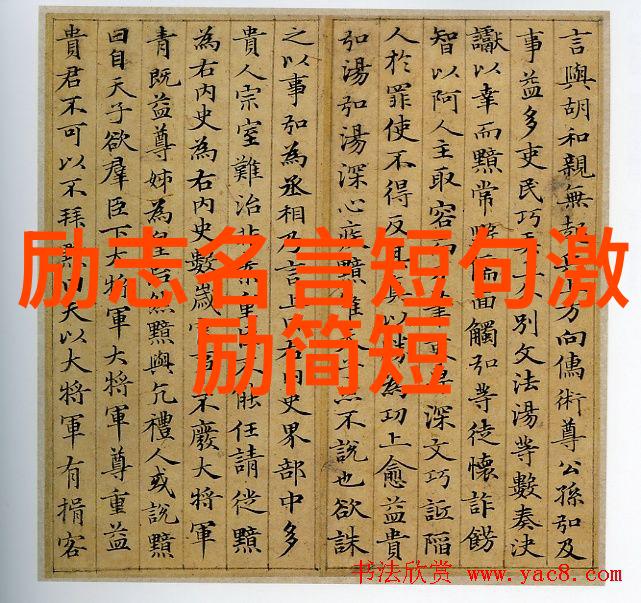 言與胡和親無上方向儒術尊公孫弘及
事益多吏民巧別文法湯等數奏決
讞以幸而黯常面觸弘等徒懷詐飭
智以阿人主取容深文巧詆陷
人於罪使不得反為功上愈益貴
弘湯弘湯深心疾黯不說也欲誅
之以事弘為丞相乃言上內史界部中多
貴人宗室難治任請徙黯
為右內史為右內史數歲不廢大將軍
青既益尊姊為皇后然黯與亢禮人或說黯
曰自天子欲羣臣下大將軍大將軍尊重益
貴君不可以不拜黯曰夫以大將軍有揖客
励志名言短句激
励简短
书法欣赏 www.yac8.com